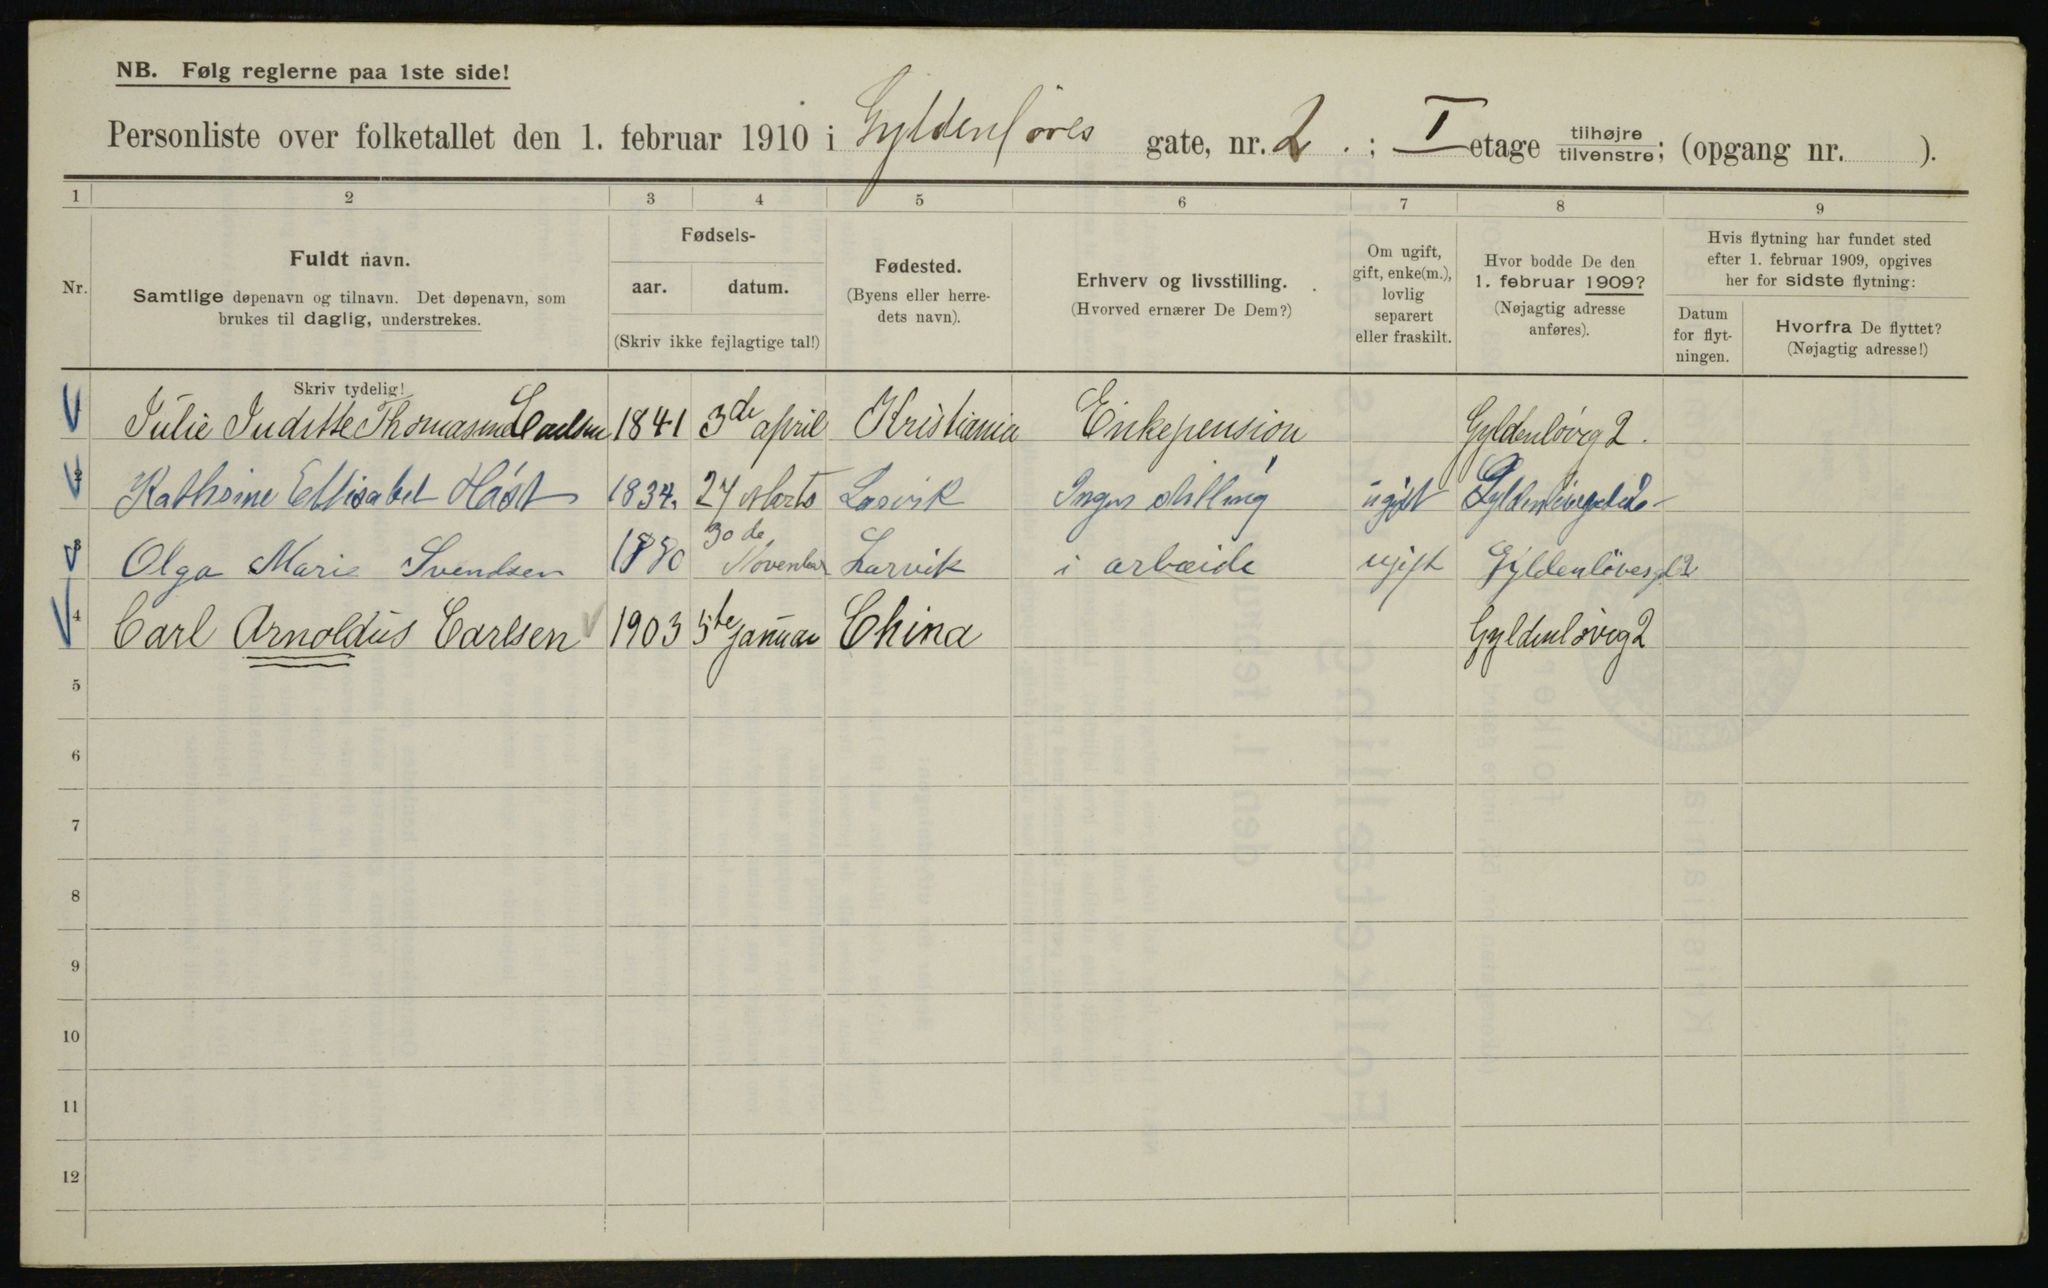 NB. Følg reglerne paa 1ste side!
Personliste over folketallet den 1. februar 1910 i Gyldenløves gate, nr. 2. ; I etage tilhøjre tilvenstre; (opgang nr. ).
1 2 3 4 5 6 7 8 9
Nr.
Fuldt navn.
Samtlige døpenavn og tilnavn. Det døpenavn, som
brukes til daglig, understrekes.
Skriv tydelig!
Fødsels-
aar. datum.
(Skriv ikke fejlagtige tal!)
Fødested.
(Byens eller herre-
dets navn).
Erhverv og livsstilling.
(Hvorved ernærer De Dem?)
Om ugift,
gift, enke(m.),
lovlig
separert
eller fraskilt.
Hvor bodde De den
1. februar 1909?
(Nøjagtig adresse
anføres).
Hvis flytning har fundet sted
efter 1. februar 1909, opgives
her for sidste flytning:
Datum
for flyt-
ningen.
Hvorfra De flyttet?
(Nøjagtig adresse!)
1 Julie Juditte Thomasine Carlsen 1841 3de april Kristiania Enkepension Gyldenløvsg 2.
2 Kathrine Ellisabet Høst 1834. 27 Marts Larvik Ingen stilling ugift
3 Olga Marie Svendsen 1880 30de November Larvik i arbeide ugift Gyldenløvesgd 2
4 Carl Arnoldus Carlsen 1903 5te januar China Gyldenløvsg 2
5
6
7
8
9
10
11
12